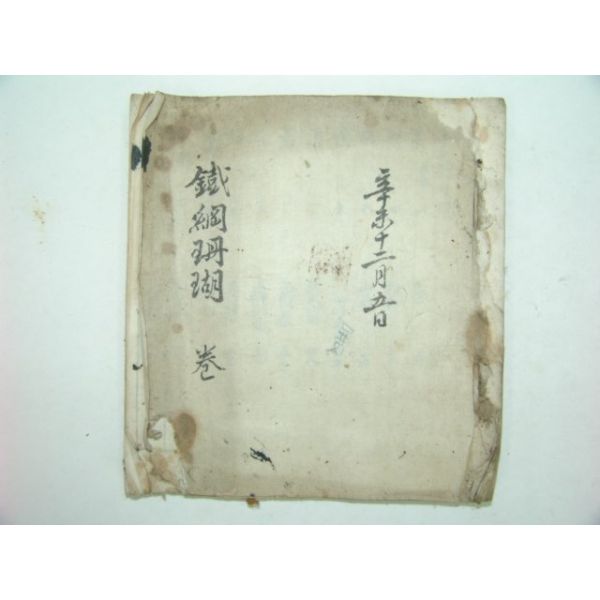 辛未十二月五日
鐵綱珊瑚 卷